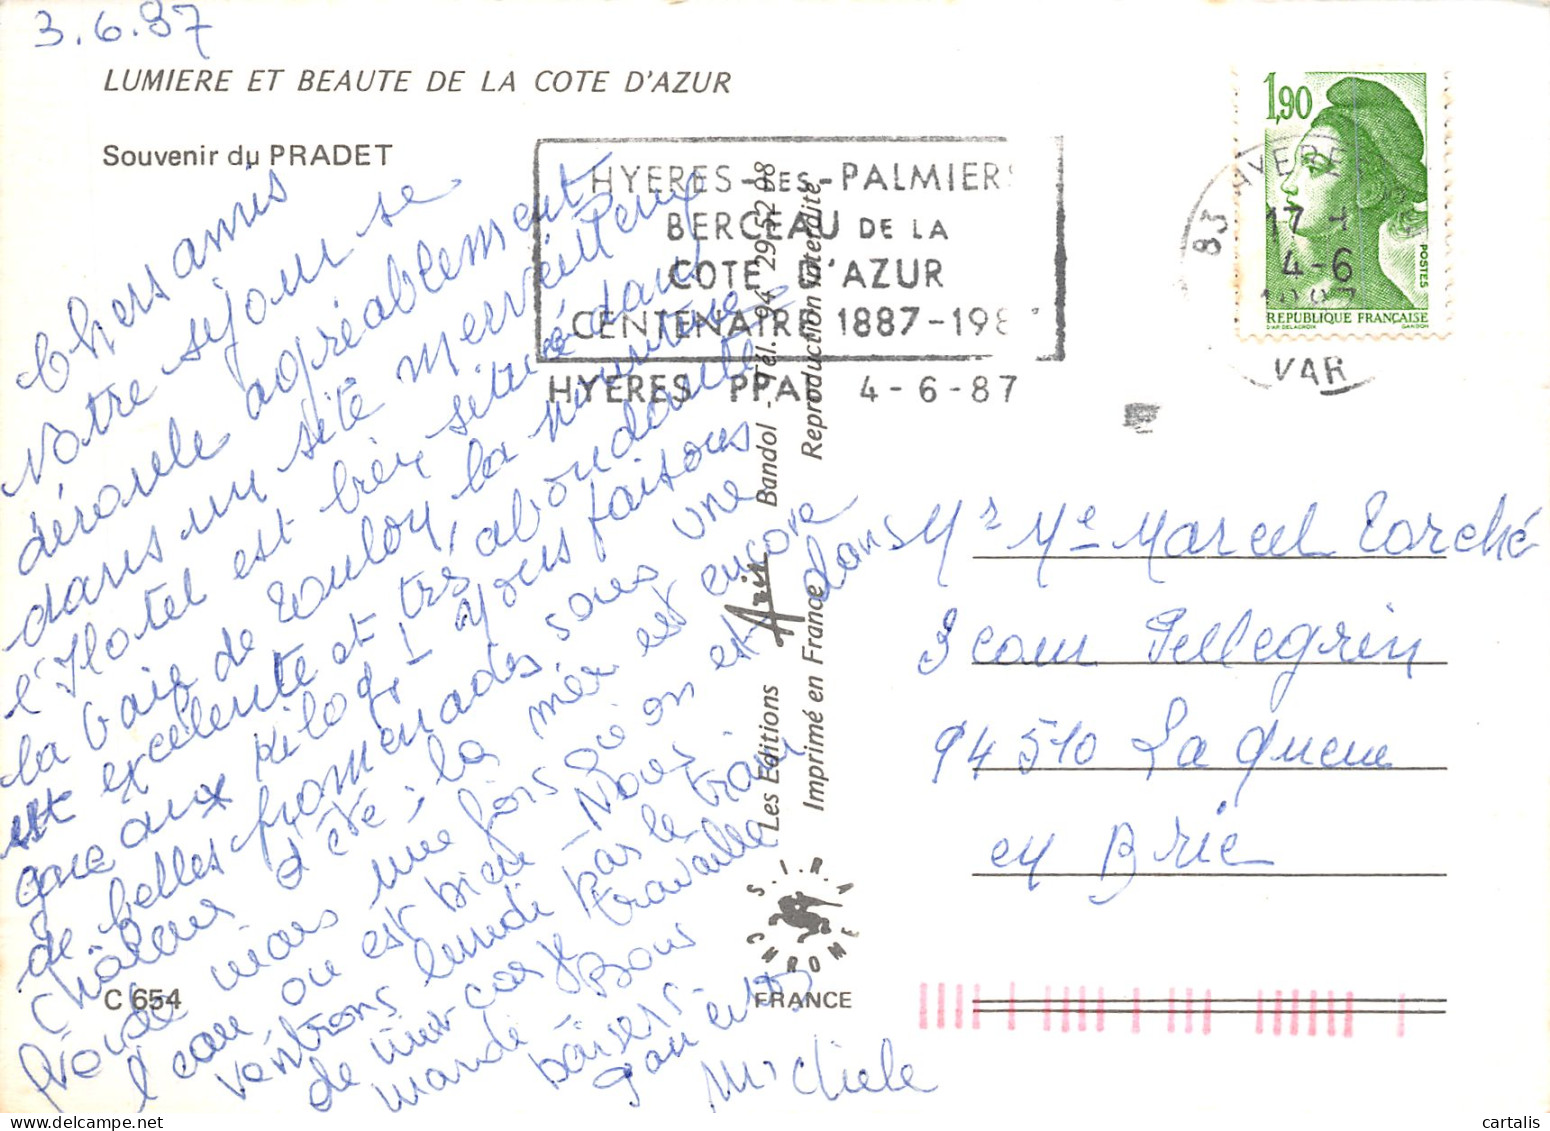 3.6.87
LUMIERE ET BEAUTE DE LA COTE D'AZUR
Souvenir du PRADET
Chers amis
Notre séjour se
déroule agréablement
dans un site merveilleux
l'Hotel est bien situé dans
la baie de Toulon, la nourriture
est excelente et très abondante
gare aux kilogs! Nous faisons
de belles promenades sous une
chaleur d'été, la mer est encore
froide mais une fois dans
l'eau on est bien. Nous
rentrons lundi
de nuit car
Bons
baisers
Michele
C 654
HYERES-DES-PALMIERS
BERCEAU DE LA
COTE D'AZUR
CENTENAIRE 1887-198
HYERES PPAL 4-6-87
Les Editions Aris Bandol - Tél. 94 29 52 08
Imprimé en France Reproduction interdite
S.I.R.A
CHROME
FRANCE
1,90
POSTES
REPUBLIQUE FRANÇAISE
D'AP. DELACROIX GANDON
83 HYERES
17-
4-6
1987
VAR
Mr Me Marcel Torché
3 cour Pellegrin
94510 La Queue
en Brie
cartalis